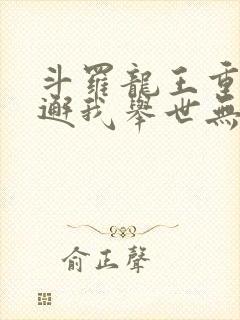 斗羅龍王重
邂我舉世無
俞正聲